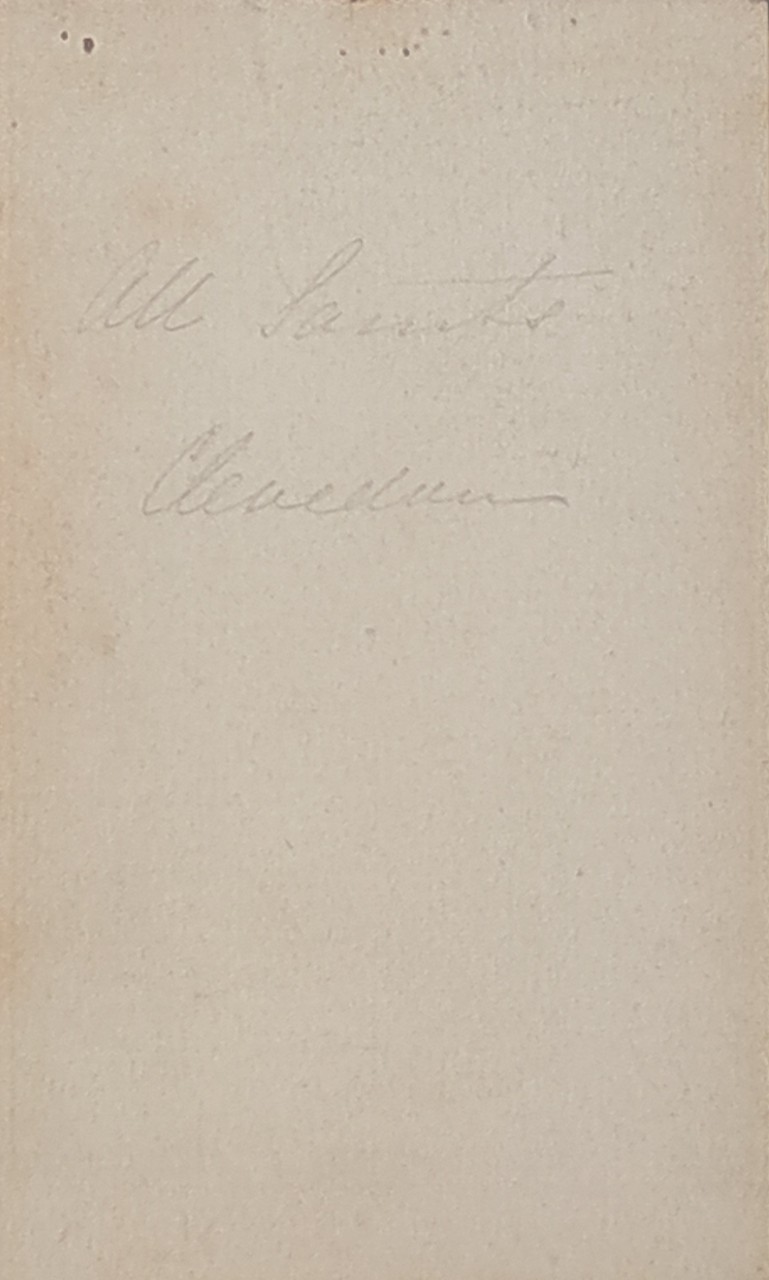 All Saints
Clevedon